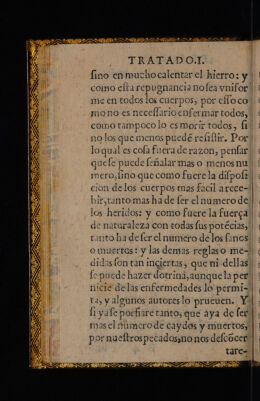 TRATADO.I.
sino en mucho calentar el hierro: y
como esta repugnancia no sea vnifor
me en todos los cuerpos, por esso co
mo no es necessario enfermar todos,
como tampoco lo es morir todos, si
no los que menos puedē resistir. Por
lo qual es cosa fuera de razon, pensar
que se puede señalar mas o menos nu
mero, sino que como fuere la disposi
cion de los cuerpos mas facil a rece-
bir, tanto mas ha de ser el numero de
los heridos: y como fuere la fuerça
de naturaleza con todas sus potēcias,
tanto ha de ser el numero de los sanos
o muertos: y las demas reglas o me-
didas son tan inciertas, que ni dellas
se puede hazer dotrina, aunque la per
nicie de las enfermedades lo permi-
ta, y algunos autores lo prueuen. Y
si ya se porfiare tanto, que aya de ser
mas el numero de caydos y muertos,
por nuestros pecados, no nos descōcer
tare-